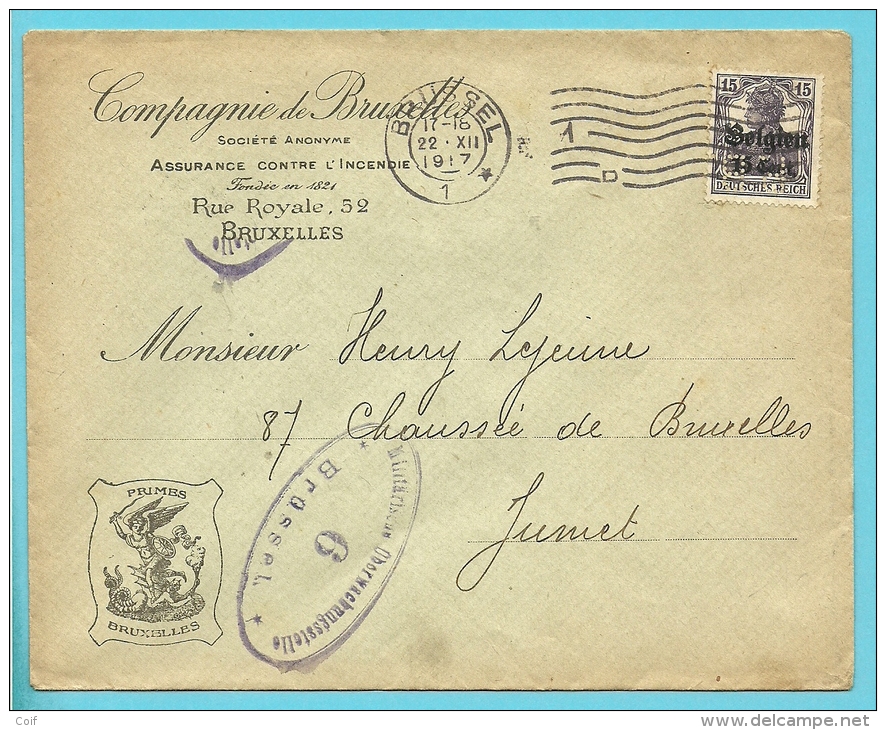 Compagnie de Bruxelles
SOCIÉTÉ ANONYME
ASSURANCE CONTRE L'INCENDIE
Fondée en 1821
RUE ROYALE, 52
BRUXELLES
stelle
BRÜSSEL
17-18
22·XII
1917
1
1
D
15 15
Belgien
15 Cent.
DEUTSCHES REICH
Monsieur Henry Lejeune
87 Chaussée de Bruxelles
Jumet
Militärische Überwachungsstelle
6
Brüssel.
PRIMES
BRUXELLES
Coif
delcampe.net